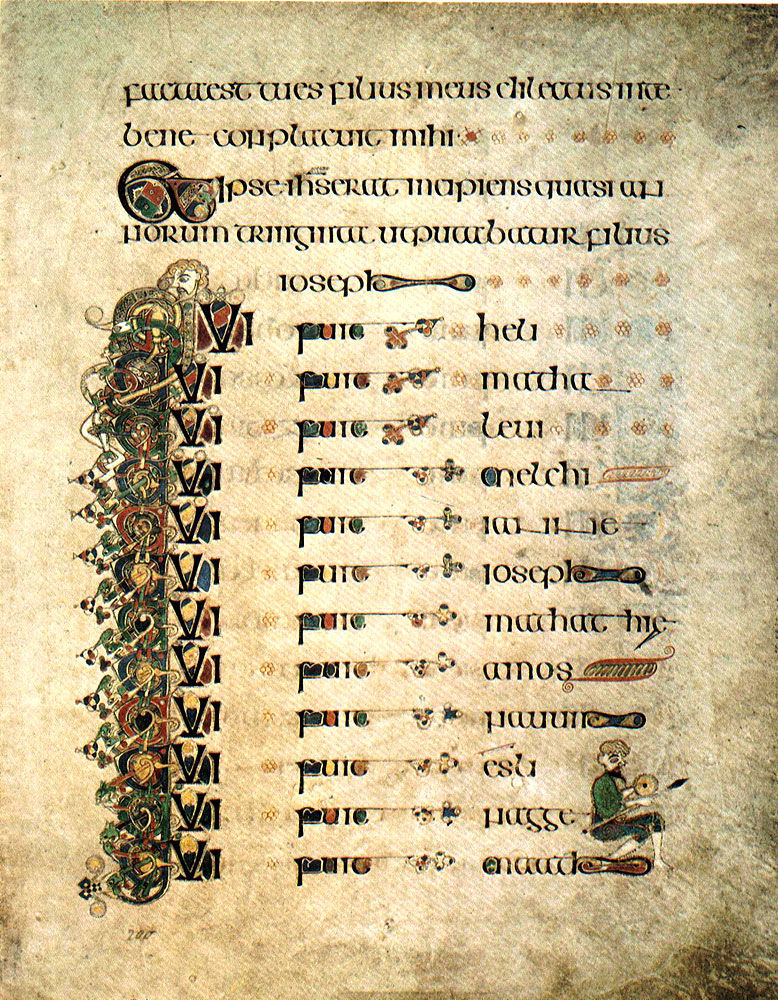 facta est tu es filius meus dilectus in te
bene conplacuit mihi
Et ipse ihs erat incipiens quasi an
norum triginta ut putabatur filius
ioseph
QVI fuit heli
QVI fuit matha
QVI fuit leui
QVI fuit melchi
QVI fuit ianne
QVI fuit ioseph
QVI fuit mathathie
QVI fuit amos
QVI fuit nauum
QVI fuit esli
QVI fuit nagge
QVI fuit maath
200